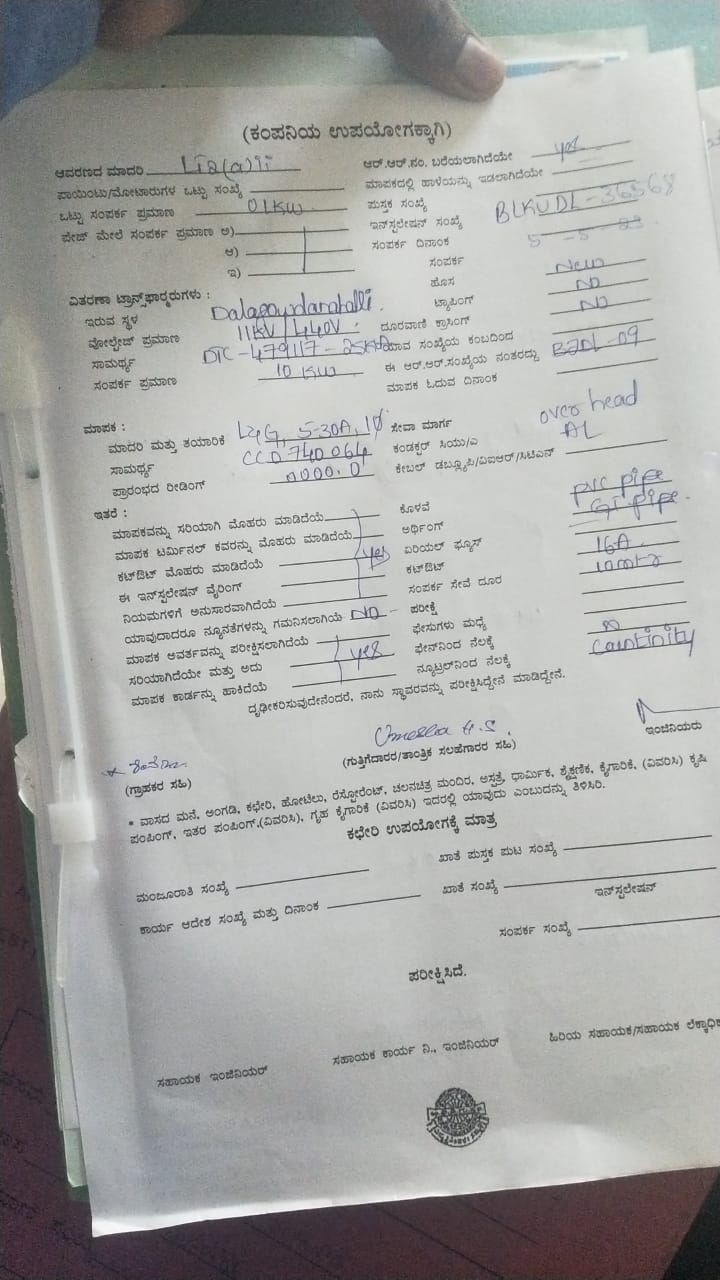 (ಕಂಪನಿಯ ಉಪಯೋಗಕ್ಕಾಗಿ)
ಆವರಣದ ಮಾದರಿ
ಪಾಯಿಂಟು/ಮೋಟಾರುಗಳ ಒಟ್ಟು ಸಂಖ್ಯೆ
ಒಟ್ಟು ಸಂಪರ್ಕ ಪ್ರಮಾಣ 01KW
ಪೇಜ್ ಮೇಲೆ ಸಂಪರ್ಕ ಪ್ರಮಾಣ ಅ)
ಆ)
ಇ)
ಆರ್.ಆರ್.ನಂ. ಬರೆಯಲಾಗಿದೆಯೇ yes
ಮಾಪಕದಲ್ಲಿ ಹಾಳೆಯನ್ನು ಇಡಲಾಗಿದೆಯೇ
ಪುಸ್ತಕ ಸಂಖ್ಯೆ
ಇನ್‌ಸ್ಟಲೇಷನ್ ಸಂಖ್ಯೆ BLKUDL-36568
ಸಂಪರ್ಕ ದಿನಾಂಕ
ಸಂಪರ್ಕ
ಹೊಸ New
ಟ್ಯಾಪಿಂಗ್ NO
ದೂರವಾಣಿ ಕ್ರಾಸಿಂಗ್ NO
ಯಾವ ಸಂಖ್ಯೆಯ ಕಂಬದಿಂದ
ಈ ಆರ್.ಆರ್.ಸಂಖ್ಯೆಯ ನಂತರದ್ದು
ಮಾಪಕ ಓದುವ ದಿನಾಂಕ
ವಿತರಣಾ ಟ್ರಾನ್ಸ್‌ಫಾರ್ಮರುಗಳು :
ಇರುವ ಸ್ಥಳ
ವೋಲ್ಟೇಜ್ ಪ್ರಮಾಣ 11KV/440V
ಸಾಮರ್ಥ್ಯ
ಸಂಪರ್ಕ ಪ್ರಮಾಣ 10 KW
ಮಾಪಕ :
ಮಾದರಿ ಮತ್ತು ತಯಾರಿಕೆ L&G, 5-30A, 1Ø
ಸಾಮರ್ಥ್ಯ
ಪ್ರಾರಂಭದ ರೀಡಿಂಗ್ 0000.0
ಸೇವಾ ಮಾರ್ಗ over head
ಕಂಡಕ್ಟರ್ ಸಿಯು/ಎ AL
ಕೇಬಲ್ ಡಬ್ಲ್ಯೂಪಿ/ವಿಐಆರ್/ಸಿಟಿಎಸ್
ಇತರೆ :
ಮಾಪಕವನ್ನು ಸರಿಯಾಗಿ ಮೊಹರು ಮಾಡಿದೆಯೆ
ಮಾಪಕ ಟರ್ಮಿನಲ್ ಕವರನ್ನು ಮೊಹರು ಮಾಡಿದೆಯೆ
ಕಟ್‌ಔಟ್ ಮೊಹರು ಮಾಡಿದೆಯೆ yes
ಈ ಇನ್‌ಸ್ಟಲೇಷನ್ ವೈರಿಂಗ್
ನಿಯಮಗಳಿಗೆ ಅನುಸಾರವಾಗಿದೆಯೆ
ಯಾವುದಾದರೂ ನ್ಯೂನತೆಗಳನ್ನು ಗಮನಿಸಲಾಗಿಯೆ NO
ಮಾಪಕ ಅವರ್ತವನ್ನು ಪರೀಕ್ಷಿಸಲಾಗಿದೆಯೆ
ಸರಿಯಾಗಿದೆಯೇ ಮತ್ತು ಅದು yes
ಮಾಪಕ ಕಾರ್ಡನ್ನು ಹಾಕಿದೆಯೆ
ಕೊಳವೆ PVC pipe
ಅರ್ಥಿಂಗ್ GI pipe.
ಏರಿಯಲ್ ಫ್ಯೂಸ್
ಕಟ್‌ಔಟ್ 16A
ಸಂಪರ್ಕ ಸೇವೆ ದೂರ
ಪರೀಕ್ಷೆ
ಫೇಸುಗಳು ಮಧ್ಯೆ
ಫೇಸ್‌ನಿಂದ ನೆಲಕ್ಕೆ
ನ್ಯೂಟ್ರಲ್‌ನಿಂದ ನೆಲಕ್ಕೆ Countinity
ದೃಢೀಕರಿಸುವುದೇನೆಂದರೆ, ನಾನು ಸ್ಥಾವರವನ್ನು ಪರೀಕ್ಷಿಸಿದ್ದೇನೆ ಮಾಡಿದ್ದೇನೆ.
(ಗ್ರಾಹಕರ ಸಹಿ)
(ಗುತ್ತಿಗೆದಾರರ/ತಾಂತ್ರಿಕ ಸಲಹೆಗಾರರ ಸಹಿ)
ಇಂಜಿನಿಯರು
* ವಾಸದ ಮನೆ, ಅಂಗಡಿ, ಕಛೇರಿ, ಹೋಟೆಲು, ರೆಸ್ಟೋರೆಂಟ್, ಚಲನಚಿತ್ರ ಮಂದಿರ, ಆಸ್ಪತ್ರೆ, ಧಾರ್ಮಿಕ, ಶೈಕ್ಷಣಿಕ, ಕೈಗಾರಿಕೆ, (ವಿವರಿಸಿ) ಕೃಷಿ
ಪಂಪಿಂಗ್, ಇತರ ಪಂಪಿಂಗ್,(ವಿವರಿಸಿ), ಗೃಹ ಕೈಗಾರಿಕೆ (ವಿವರಿಸಿ) ಇದರಲ್ಲಿ ಯಾವುದು ಎಂಬುದನ್ನು ತಿಳಿಸಿರಿ.
ಕಛೇರಿ ಉಪಯೋಗಕ್ಕೆ ಮಾತ್ರ
ಮಂಜೂರಾತಿ ಸಂಖ್ಯೆ
ಖಾತೆ ಪುಸ್ತಕ ಪುಟ ಸಂಖ್ಯೆ
ಕಾರ್ಯ ಆದೇಶ ಸಂಖ್ಯೆ ಮತ್ತು ದಿನಾಂಕ
ಖಾತೆ ಸಂಖ್ಯೆ
ಇನ್‌ಸ್ಟಲೇಷನ್
ಸಂಪರ್ಕ ಸಂಖ್ಯೆ
ಪರೀಕ್ಷಿಸಿದೆ.
ಸಹಾಯಕ ಇಂಜಿನಿಯರ್
ಸಹಾಯಕ ಕಾರ್ಯ ನಿ., ಇಂಜಿನಿಯರ್
ಹಿರಿಯ ಸಹಾಯಕ/ಸಹಾಯಕ